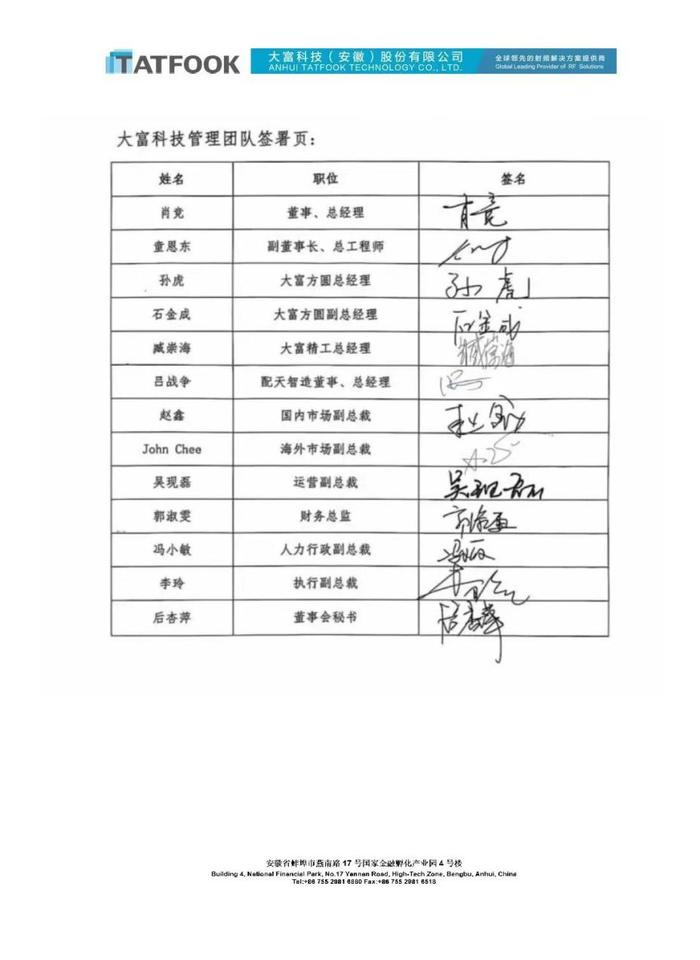 TATFOOK
大富科技（安徽）股份有限公司
ANHUI TATFOOK TECHNOLOGY CO., LTD.
全球领先的射频解决方案提供商
Global Leading Provider of RF Solutions
大富科技管理团队签署页：
姓名 职位 签名
肖竞 董事、总经理 肖竞
童恩东 副董事长、总工程师
孙虎 大富方圆总经理 孙虎
石金成 大富方圆副总经理 石金成
臧崇海 大富精工总经理 臧崇海
吕战争 配天智造董事、总经理
赵鑫 国内市场副总裁 赵鑫
John Chee 海外市场副总裁
吴现磊 运营副总裁 吴现磊
郭淑雯 财务总监 郭淑雯
冯小敏 人力行政副总裁
李玲 执行副总裁 李玲
后杏萍 董事会秘书 后杏萍
安徽省蚌埠市燕南路 17 号国家金融孵化产业园 4 号楼
Building 4, National Financial Park, No.17 Yannan Road, High-Tech Zone, Bengbu, Anhui, China
Tel:+86 755 2981 6880 Fax:+86 755 2981 6518